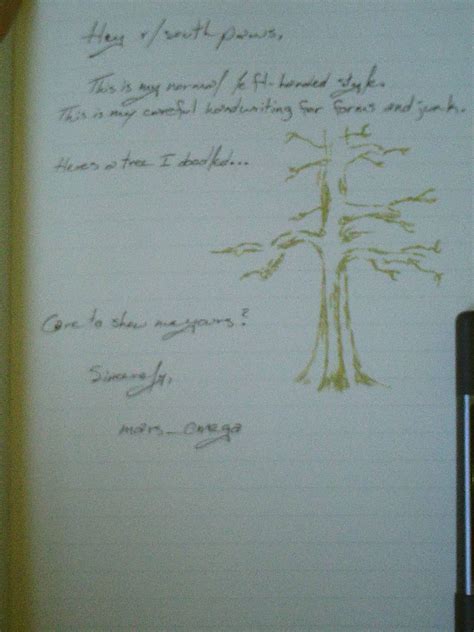 Hey r/southpaws,
This is my normal left-handed style.
This is my careful handwriting for forms and junk.
Heres a tree I doodled...
Care to show me yours?
Sincerely,
mars_omega